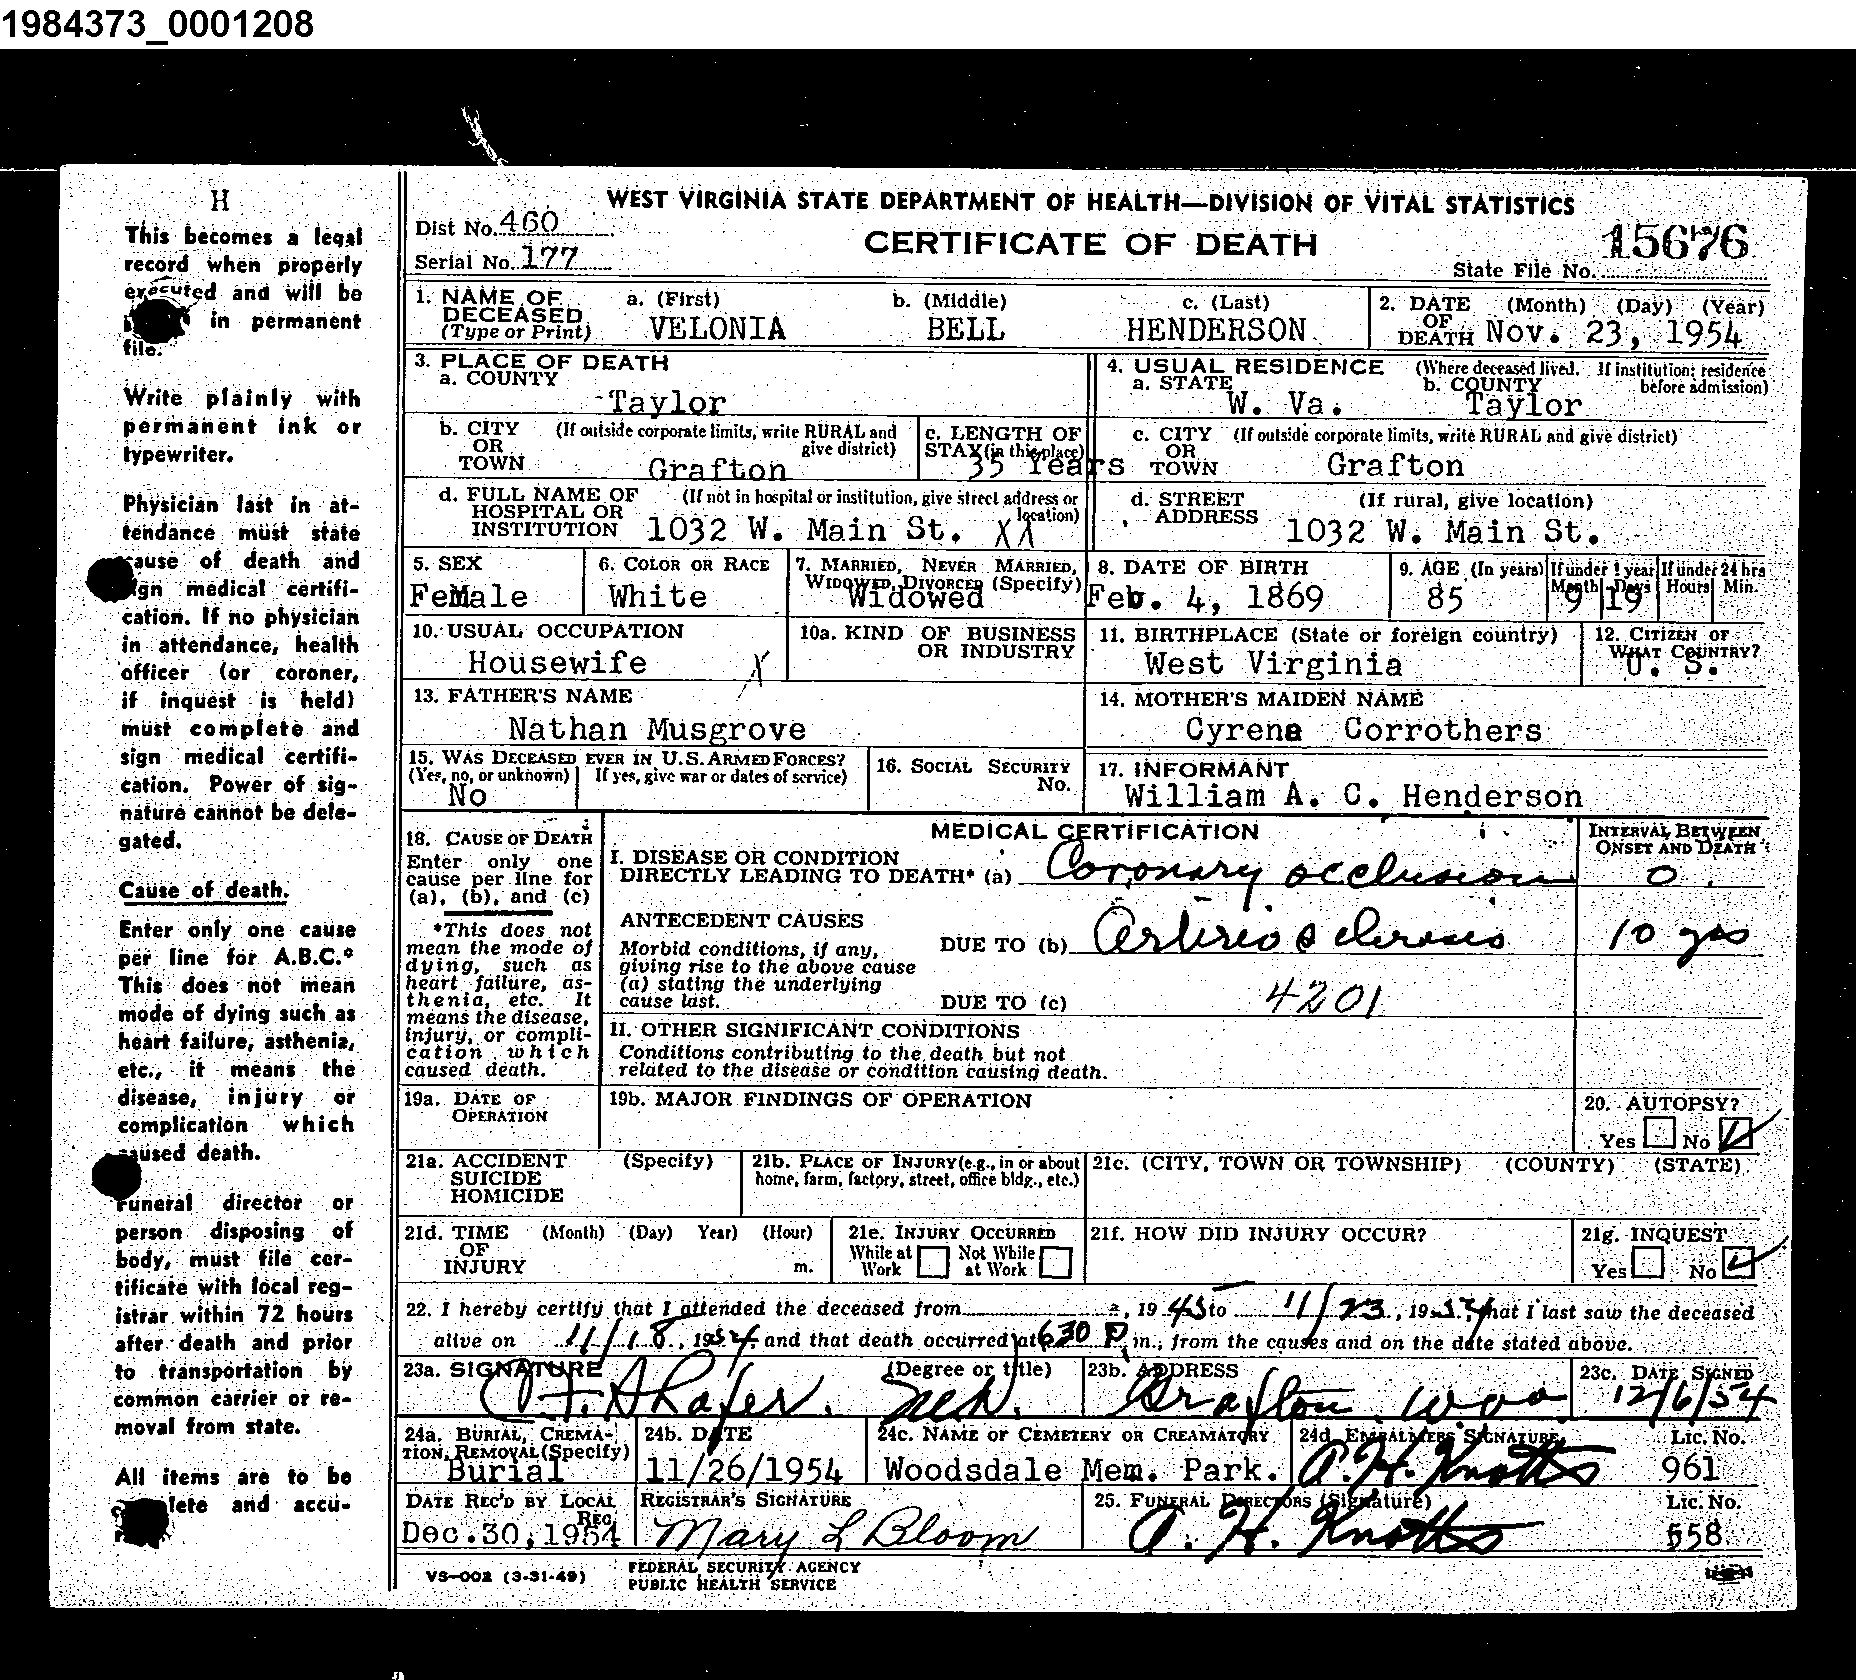 1984373_0001208
H
This becomes a legal
record when properly
executed and will be
in permanent
file.
Write plainly with
permanent ink or
typewriter.
Physician last in at-
tendance must state
cause of death and
sign medical certifi-
cation. If no physician
in attendance, health
officer (or coroner,
if inquest is held)
must complete and
sign medical certifi-
cation. Power of sig-
nature cannot be dele-
gated.
Cause of death.
Enter only one cause
per line for A.B.C.*
This does not mean
mode of dying such as
heart failure, asthenia,
etc., it means the
disease, injury or
complication which
caused death.
Funeral director or
person disposing of
body, must file cer-
tificate with local reg-
istrar within 72 hours
after death and prior
to transportation by
common carrier or re-
moval from state.
All items are to be
plete and accu-
WEST VIRGINIA STATE DEPARTMENT OF HEALTH—DIVISION OF VITAL STATISTICS
CERTIFICATE OF DEATH
Dist No. 460
Serial No. 177
15676
State File No.
1. NAME OF DECEASED (Type or Print) a. (First) b. (Middle) c. (Last)
VELONIA BELL HENDERSON
2. DATE OF DEATH (Month) (Day) (Year)
Nov. 23, 1954
3. PLACE OF DEATH
a. COUNTY
Taylor
4. USUAL RESIDENCE (Where deceased lived. If institution: residence before admission)
a. STATE b. COUNTY
W. Va. Taylor
b. CITY OR TOWN (If outside corporate limits, write RURAL and give district)
Grafton
c. LENGTH OF STAY (in this place)
35 Years
c. CITY OR TOWN (If outside corporate limits, write RURAL and give district)
Grafton
d. FULL NAME OF HOSPITAL OR INSTITUTION (If not in hospital or institution, give street address or location)
1032 W. Main St. XX
d. STREET ADDRESS (If rural, give location)
1032 W. Main St.
5. SEX
FeMale
6. COLOR OR RACE
White
7. MARRIED, NEVER MARRIED, WIDOWED, DIVORCED (Specify)
Widowed
8. DATE OF BIRTH
Feb. 4, 1869
9. AGE (In years) If under 1 year Month Days If under 24 hrs Hours Min.
85 9 19
10. USUAL OCCUPATION
Housewife X
10a. KIND OF BUSINESS OR INDUSTRY
11. BIRTHPLACE (State or foreign country)
West Virginia
12. CITIZEN OF WHAT COUNTRY?
U. S.
13. FATHER'S NAME
Nathan Musgrove
14. MOTHER'S MAIDEN NAME
Cyrena Corrothers
15. WAS DECEASED EVER IN U.S. ARMED FORCES?
(Yes, no, or unknown) If yes, give war or dates of service)
No
16. SOCIAL SECURITY No.
17. INFORMANT
William A. C. Henderson
18. CAUSE OF DEATH
Enter only one
cause per line for
(a), (b), and (c)
*This does not
mean the mode of
dying, such as
heart failure, as-
thenia, etc. It
means the disease,
injury, or compli-
cation which
caused death.
MEDICAL CERTIFICATION
INTERVAL BETWEEN ONSET AND DEATH
I. DISEASE OR CONDITION
DIRECTLY LEADING TO DEATH* (a) Coronary occlusion 0
ANTECEDENT CAUSES
Morbid conditions, if any,
giving rise to the above cause
(a) stating the underlying
cause last.
DUE TO (b) Arteriosclerosis 10 yrs
DUE TO (c) 4201
II. OTHER SIGNIFICANT CONDITIONS
Conditions contributing to the death but not
related to the disease or condition causing death.
19a. DATE OF OPERATION
19b. MAJOR FINDINGS OF OPERATION
20. AUTOPSY?
Yes No
21a. ACCIDENT SUICIDE HOMICIDE (Specify)
21b. PLACE OF INJURY (e.g., in or about home, farm, factory, street, office bldg., etc.)
21c. (CITY, TOWN OR TOWNSHIP) (COUNTY) (STATE)
21d. TIME OF INJURY (Month) (Day) Year) (Hour) m.
21e. INJURY OCCURRED
While at Work Not While at Work
21f. HOW DID INJURY OCCUR?
21g. INQUEST
Yes No
22. I hereby certify that I attended the deceased from , 1945 to 11/23, 1954, that I last saw the deceased
alive on 11/18, 1954, and that death occurred at 630 P m., from the causes and on the date stated above.
23a. SIGNATURE (Degree or title)
Shafer.
23b. ADDRESS
Grafton
23c. DATE SIGNED
12/6/54
24a. BURIAL, CREMA-
TION, REMOVAL (Specify)
Burial
24b. DATE
11/26/1954
24c. NAME OF CEMETERY OR CREAMATORY
Woodsdale Mem. Park.
24d. EMBALMERS SIGNATURE Lic. No.
A. H. Knotts 961
DATE REC'D BY LOCAL REG.
Dec.30,1954
REGISTRAR'S SIGNATURE
Mary L Bloom
25. FUNERAL DIRECTORS (Signature) Lic. No.
A. H. Knotts 558
VS-002 (3-31-49)
FEDERAL SECURITY AGENCY
PUBLIC HEALTH SERVICE